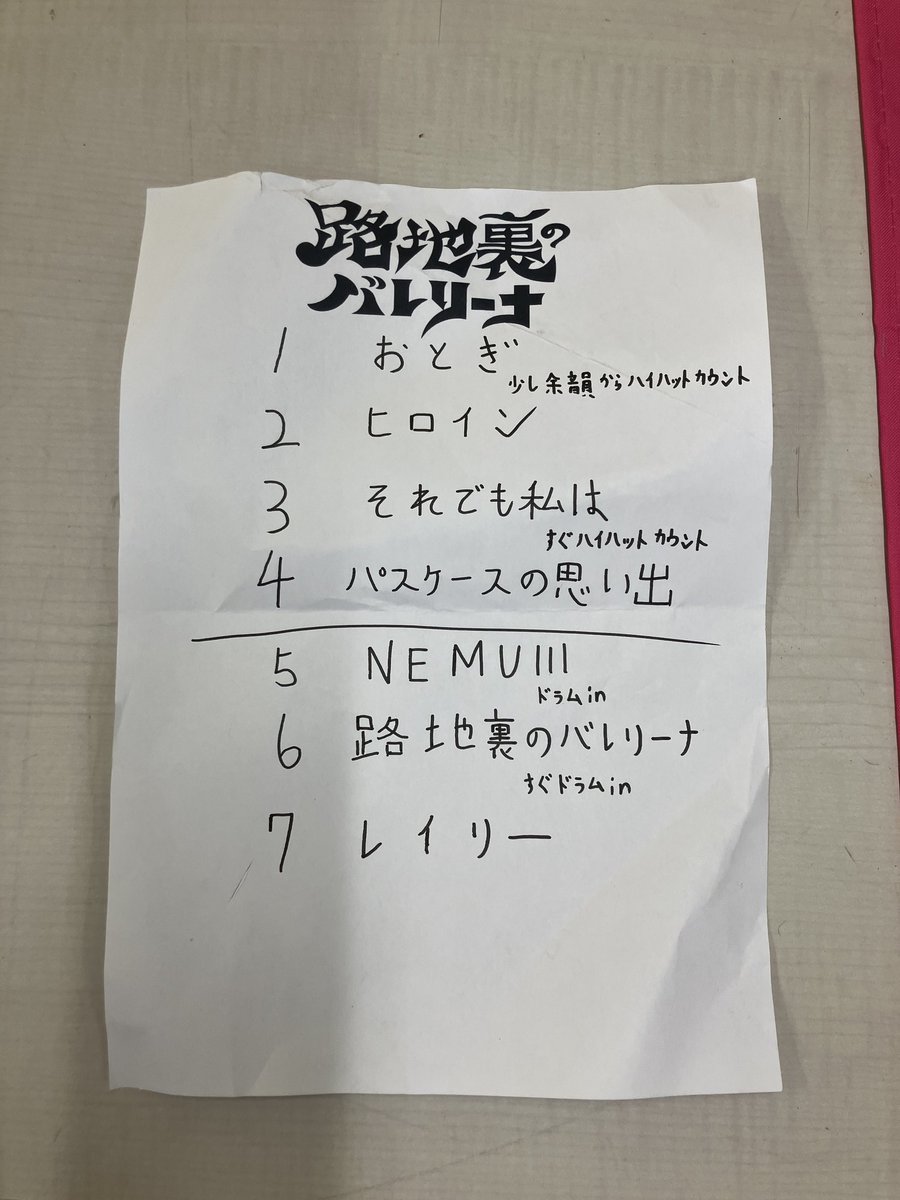 路地裏の
バレリーナ
1 おとぎ
少し余韻からハイハットカウント
2 ヒロイン
3 それでも私は
すぐハイハットカウント
4 パスケースの思い出
5 NEMUIII
ドラムin
6 路地裏のバレリーナ
すぐドラムin
7 レイリー